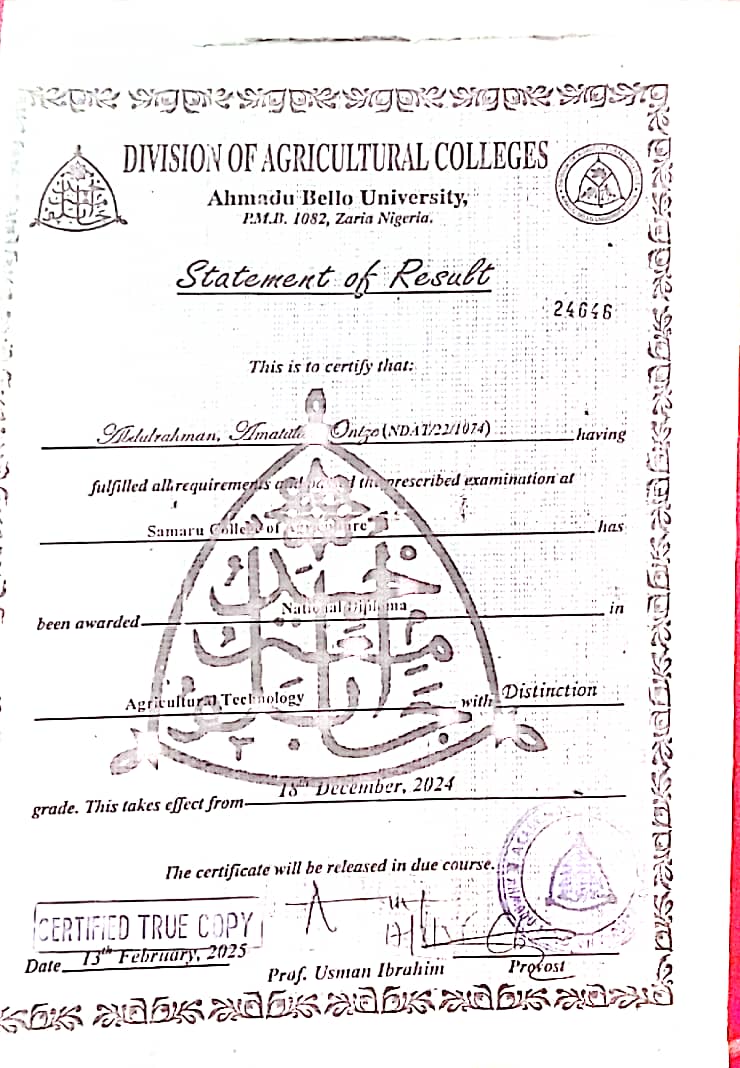 DIVISION OF AGRICULTURAL COLLEGES
Ahmadu Bello University,
P.M.B. 1082, Zaria Nigeria.
Statement of Result
24646
This is to certify that:
Abdulrahman, (NDAT/22/1074) having
fulfilled all requirements and the prescribed examination at
Samaru College of Agriculture has
been awarded National Diploma in
Agricultural Technology with Distinction
grade. This takes effect from 18th December, 2024
The certificate will be released in due course.
CERTIFIED TRUE COPY
Date 13th February, 2025
Prof. Usman Ibrahim Provost